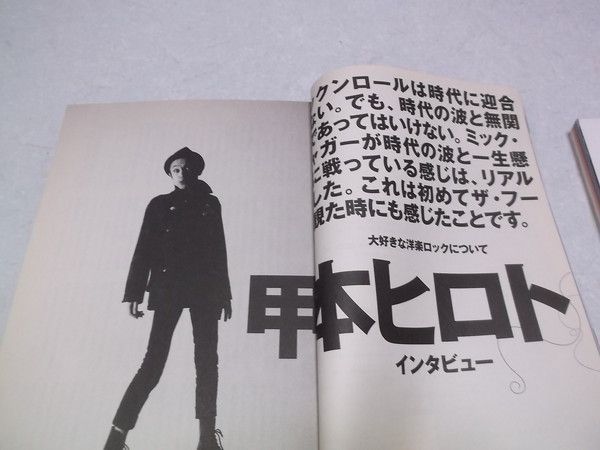 クンロールは時代に迎合
い。でも、時代の波と無関
であってはいけない。ミック・
ャガーが時代の波と一生懸
に戦っている感じは、リアル
した。これは初めてザ・フー
観た時にも感じたことです。
大好きな洋楽ロックについて
甲本ヒロト
インタビュー